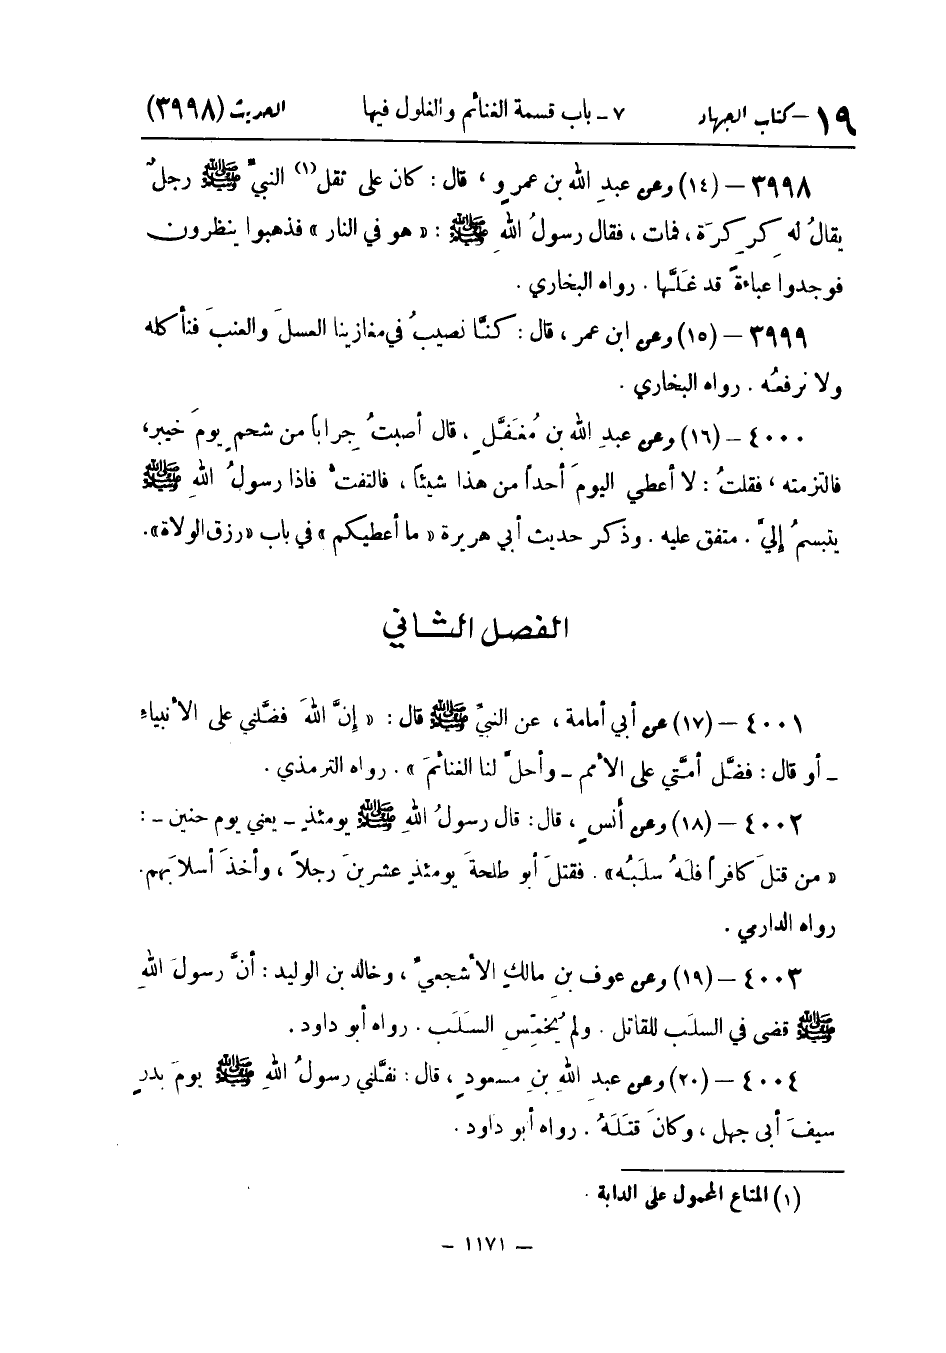 ١٩ – كتاب الجهاد ٧ – باب قسمة الغنائم والغلول فيها الحديث (٣٩٩٨)
٣٩٩٨ – (١٤) وعن عبدِ الله بن عمرٍو ، قال : كان على ثقل(١) النبيِّ ﷺ رجلٌ
يقالُ له كِركِرَة ، فمات ، فقال رسولُ اللهِ ﷺ : « هو في النار » فذهبوا ينظرون
فوجدوا عباءةً قد غلَّها . رواه البخاري .
٣٩٩٩ – (١٥) وعن ابن عمر ، قال : كنَّا نصيبُ في مغازينا العسلَ والعنبَ فنأكله
ولا نرفعُه . رواه البخاري .
٤٠٠٠ – (١٦) وعن عبدِ الله بن مُغفَّلٍ ، قال أصبتُ جِراباً من شحمٍ يومَ خيبر،
فالتزمته ، فقلتُ : لا أعطي اليومَ أحداً من هذا شيئاً ، فالتفتُّ فاذا رسولُ اللهِ ﷺ
يتبسمُ إليَّ . متفق عليه . وذكر حديث أبي هريرة « ما أعطيكم » في باب «رزق الولاة».
الفصل الثاني
٤٠٠١ – (١٧) عن أبي أمامة ، عن النبيِّ ﷺ قال : « إنَّ اللهَ فضَّلني على الأنبياءِ
– أو قال : فضَّل أمَّتي على الأمم – وأحلَّ لنا الغنائمَ » . رواه الترمذي .
٤٠٠٢ – (١٨) وعن أنسٍ ، قال : قال رسولُ اللهِ ﷺ يومئذٍ – يعني يوم حنين – :
« من قتلَ كافراً فلهُ سلَبُه» . فقتلَ أبو طلحةَ يومئذٍ عشرينَ رجلاً ، وأخذَ أسلابَهم.
رواه الدارمي .
٤٠٠٣ – (١٩) وعن عوف بنِ مالكٍ الأشجعيِّ ، وخالد بن الوليد : أنَّ رسولَ اللهِ
ﷺ قضى في السلَب للقاتل . ولم يُخمِّس السلَب . رواه أبو داود .
٤٠٠٤ – (٢٠) وعن عبدِ اللهِ بنِ مسعودٍ ، قال : نفَّلني رسولُ اللهِ ﷺ يومَ بدرٍ
سيفَ أبي جهل ، وكانَ قتَلَهُ . رواه أبو داود .
(١) المتاع المحمول على الدابة .
– ١١٧١ –